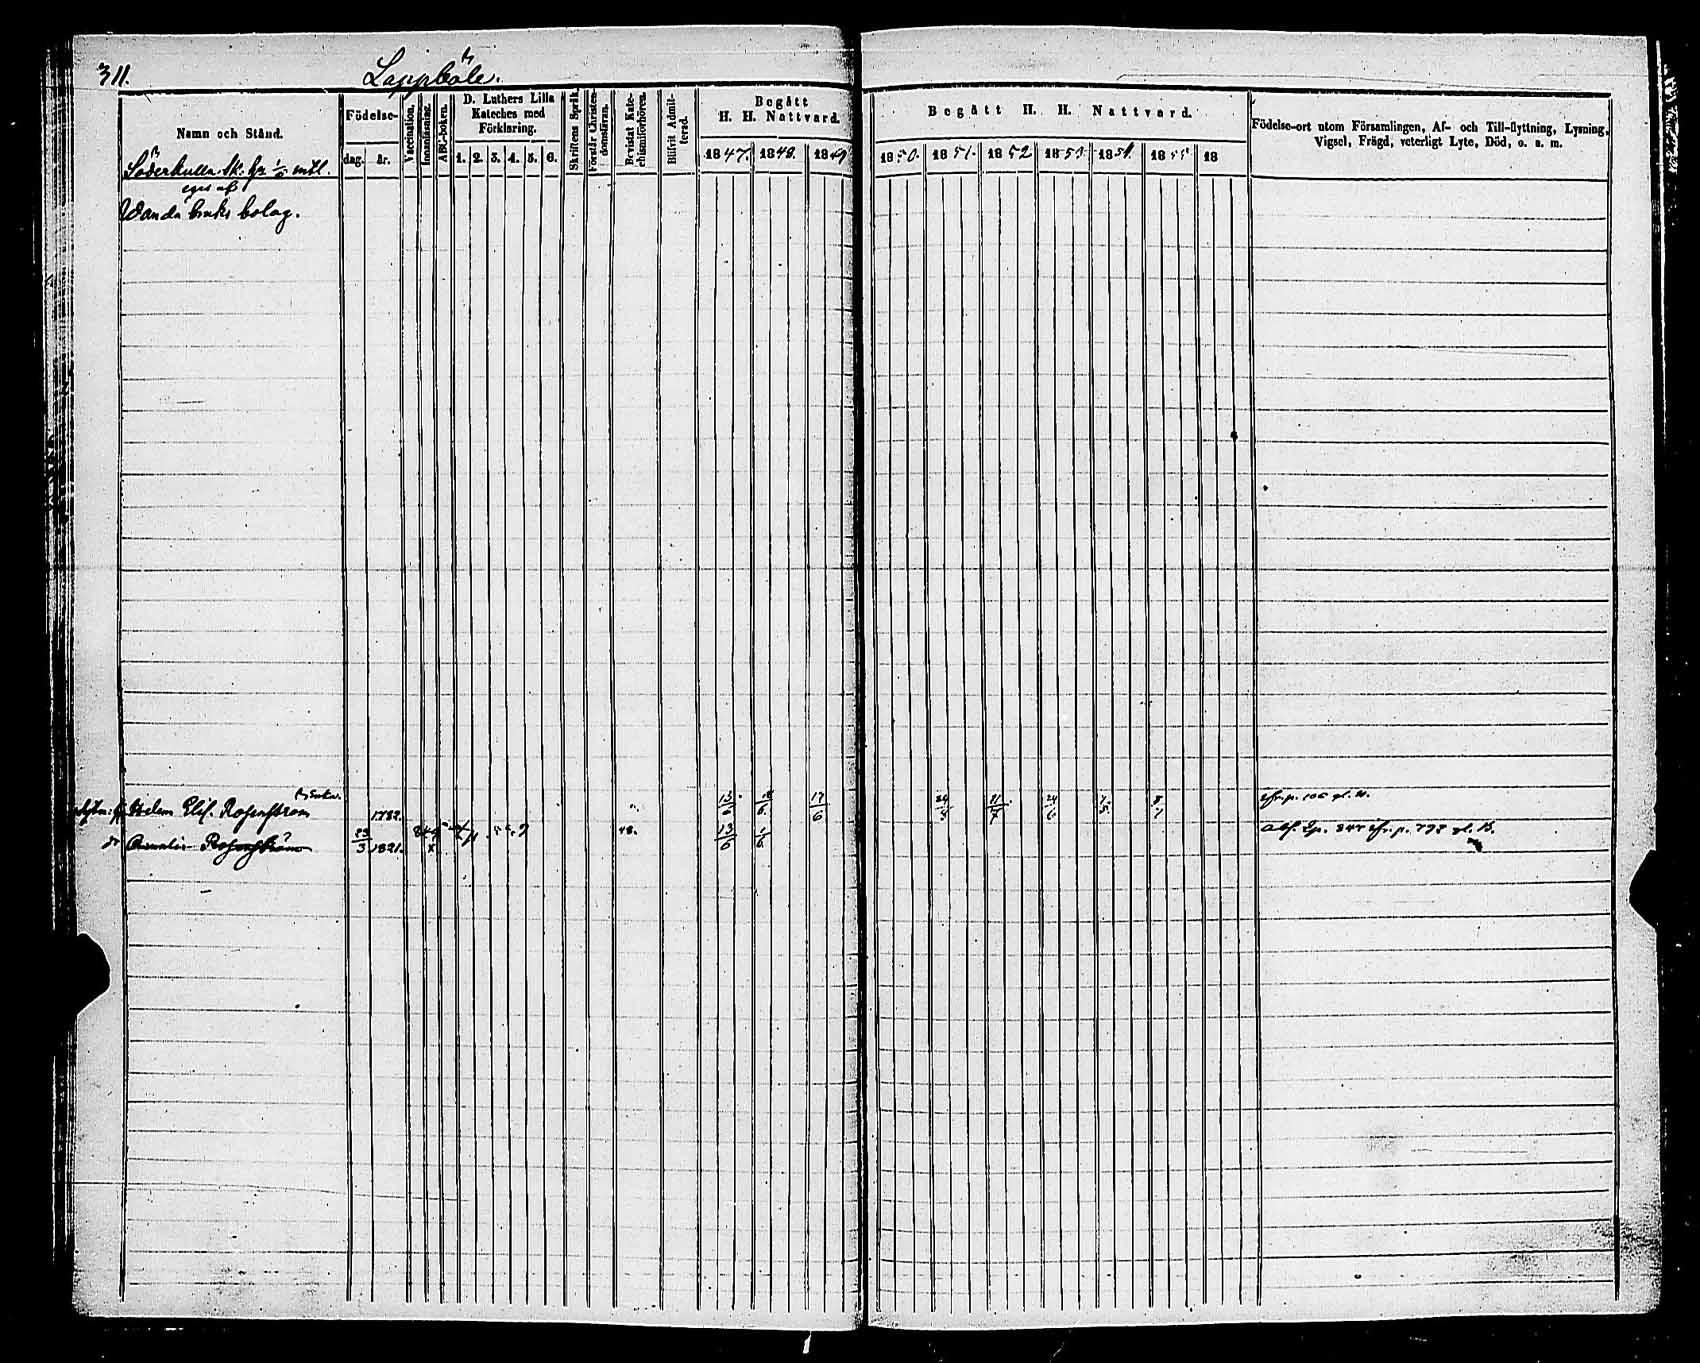 311.
Lappböle.
Namn och Stånd.
Födelse-
dag. år.
Vaccination.
Innanläsning.
ABC-boken.
D. Luthers Lilla
Kateches med
Förklaring.
1. 2. 3. 4. 5. 6.
Skriftens Språk.
Förstår Christen-
domsläran.
Bevistat Kate-
chismiförhören.
Blifvit Admit-
terad.
Begått
H. H. Nattvard.
1847. 1848. 1849
Begått H. H. Nattvard.
1850. 1851. 1852 1853 1854. 1855 18
Födelse-ort utom Församlingen, Af- och Till-flyttning, Lysning,
Vigsel, Frägd, veterligt Lyte, Död, o. s. m.
Söderkulla sk. hr 1/6 mtl.
eges af
Wanda bruks bolag.
Helena Elis. Rosenström 1782. 13/6 17/6
dr Amalia Rosenström 23/3 1821. 48. 13/6 1/6